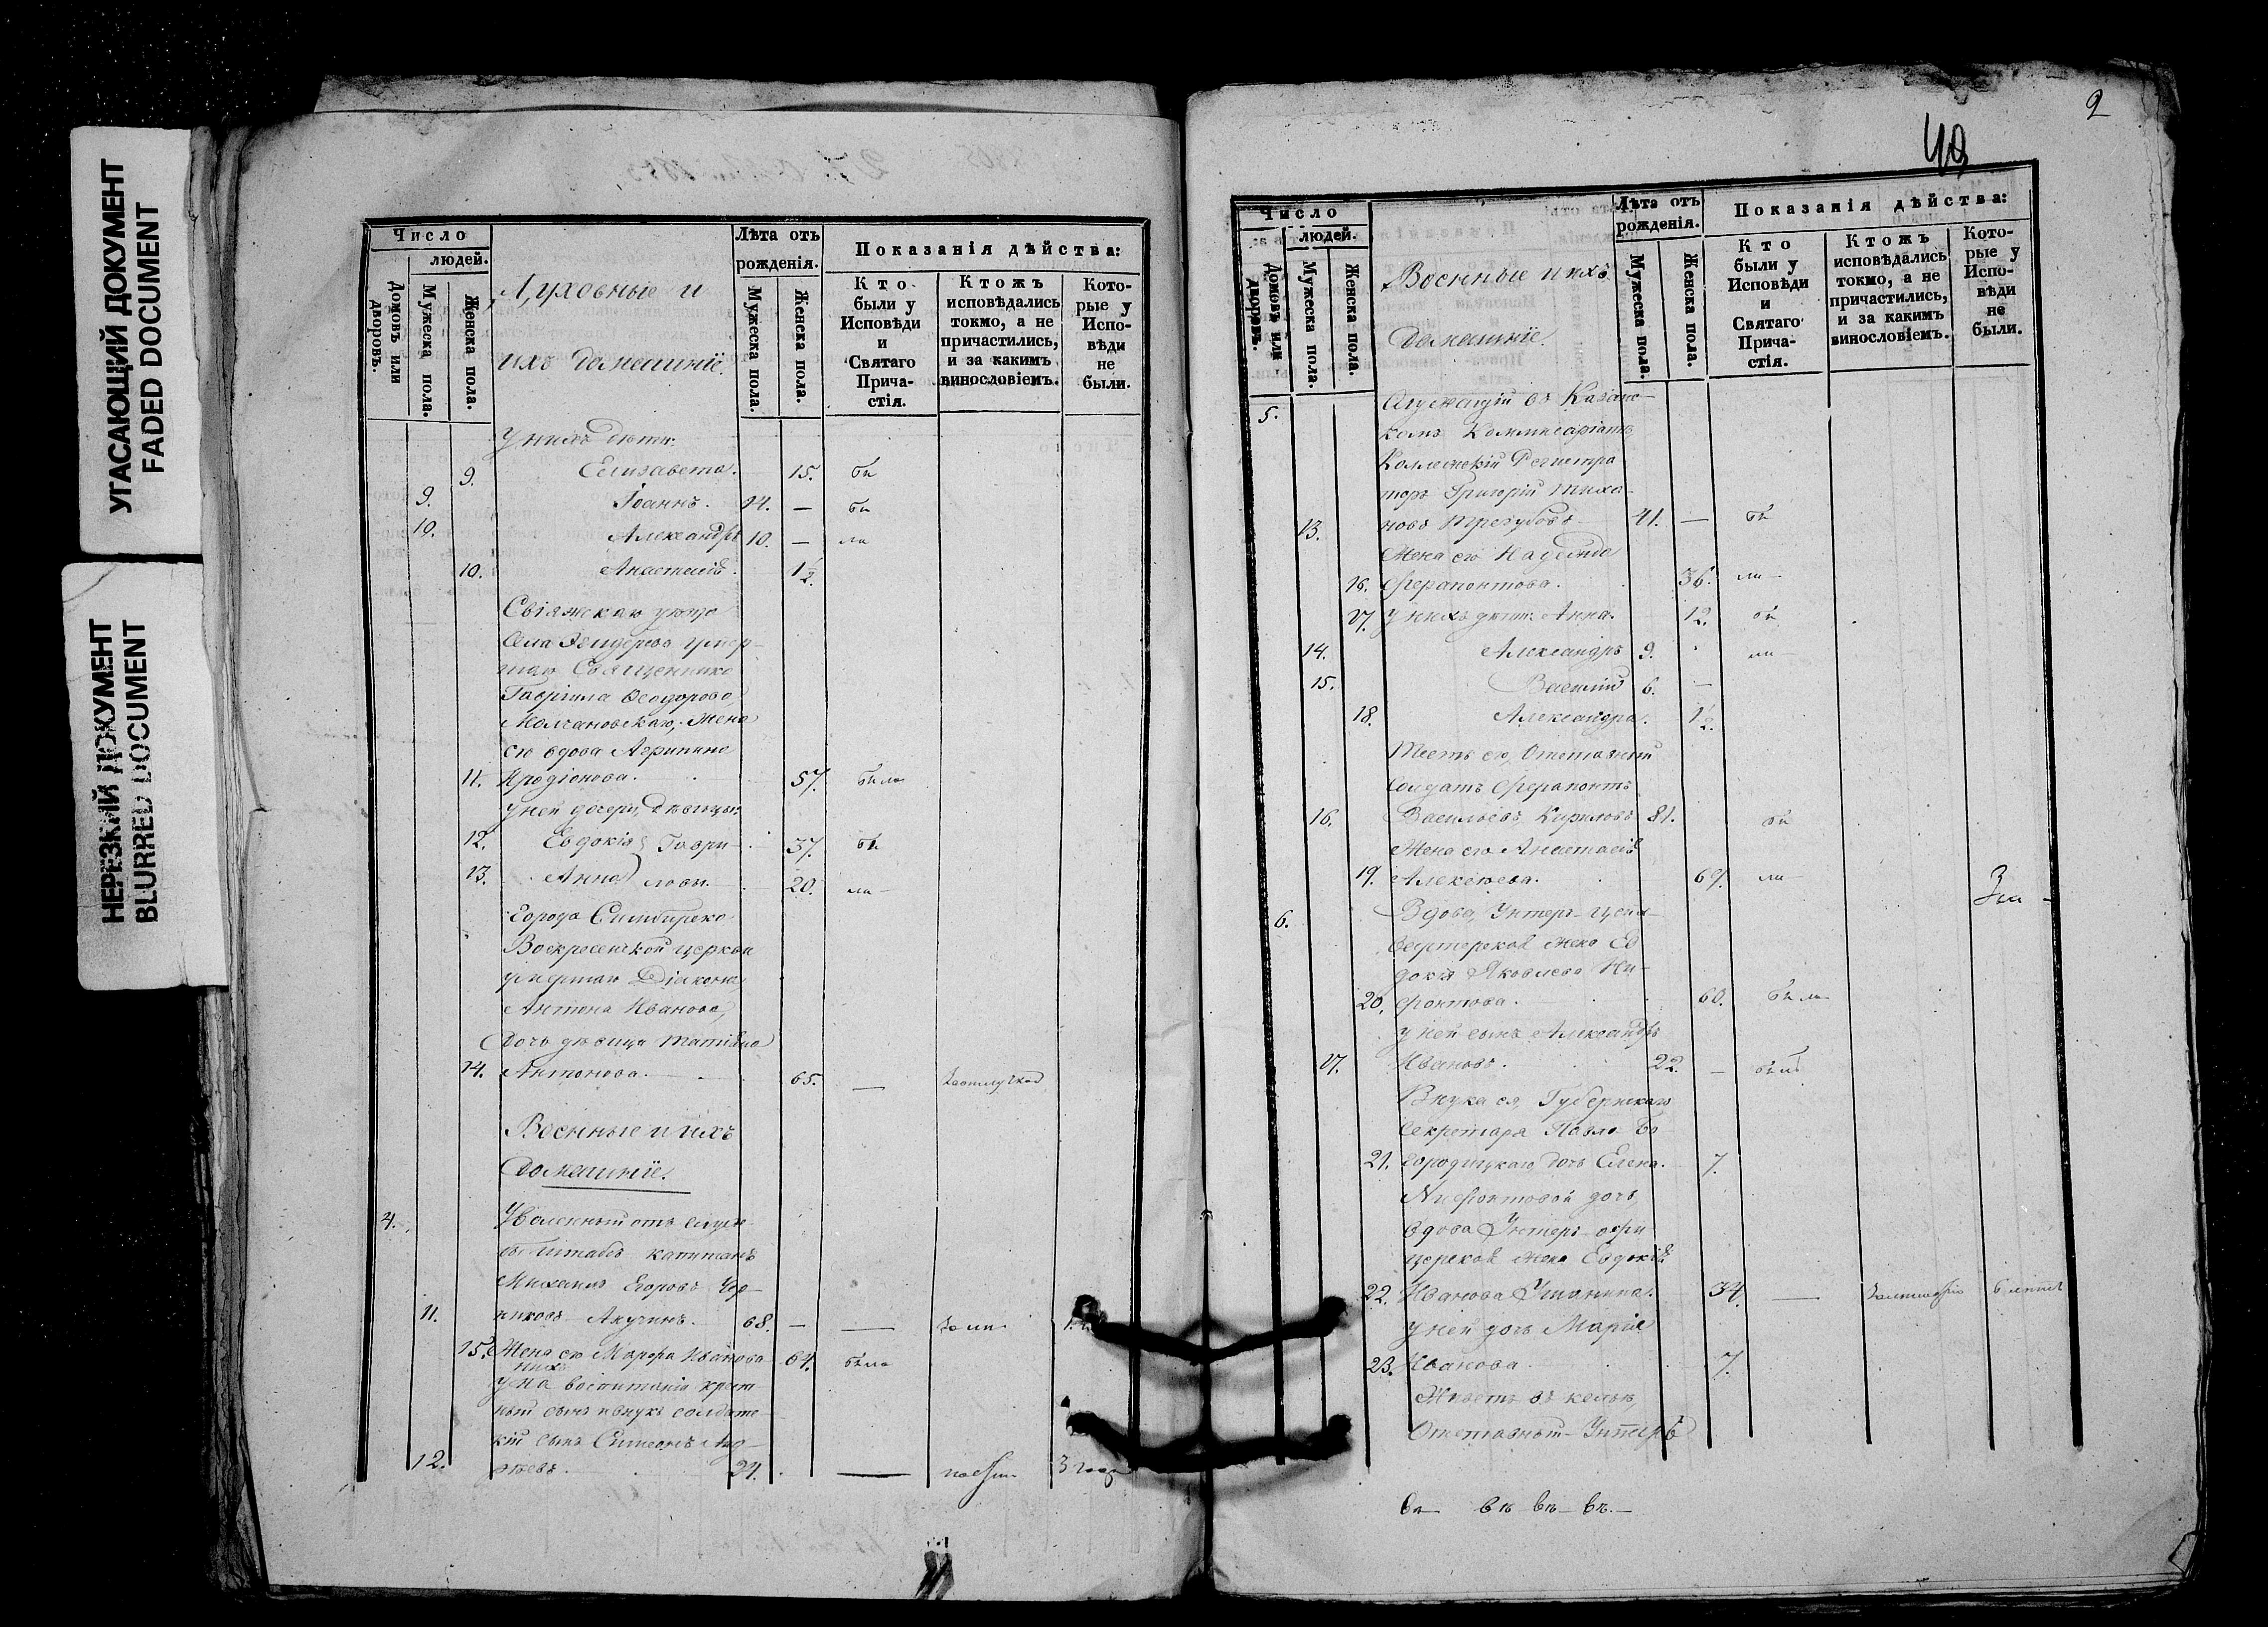 УГАСАЮЩИЙ ДОКУМЕНТ
FADED DOCUMENT
НЕРЕЗКИЙ ДОКУМЕНТ
BLURRED DOCUMENT
Число
людей.
Домовъ или дворовъ.
Мужеска пола.
Женска пола.
Духовные и
ихъ домашніе.
Лѣта отъ
рожденія.
Мужеска пола.
Женска пола.
Показанія дѣйства:
Кто
были у
Исповѣди
и
Святаго
Прича-
стія.
Ктожъ
исповѣдались
токмо, а не
причастились,
и за какимъ
винословіемъ.
Кото-
рые у
Испо-
вѣди
не
были.
У нихъ дѣти:
9. Елизавета. 15. бы
9. Іоаннъ. 14. — бы
10. Александръ 10. — ли
10. Анастасія 1½.
Свіяжскаго уѣзда
Села умер-
шаго Священника
Гавріила Ѳеодорова
Молчановскаго, жена
его вдова Агрипина
11. Иродіонова. 57. была
У ней дочери, дѣвицы:
12. Евдокія Гаври- 37. бы
13. Анна ловы. 20. ли
Города Симбирска
Воскресенской церкви
умершаго Діакона
Антона Иванова,
дочь дѣвица Татіана
14. Антонова. 65. — за отлучкой
Военные и ихъ
Домашніе.
4. Уволенный отъ служ-
бы штабсъ капитанъ
Михаилъ Егоровъ Чер-
11. никовъ Акучинъ. 68. — —
15. Жена его Марфа Иванова 64. была
У нихъ на воспитаніи крест-
ный сынъ внукъ солдатс-
кій сынъ Симеонъ Анд-
12. реевъ. 24. — 3 года
2
49
Число
людей.
Домовъ или дворовъ.
Мужеска пола.
Женска пола.
Военные и ихъ
домашніе.
Лѣта отъ
рожденія.
Мужеска пола.
Женска пола.
Показанія дѣйства:
Кто
были у
Исповѣди
и
Святаго
Прича-
стія.
Ктожъ
исповѣдались
токмо, а не
причастились,
и за какимъ
винословіемъ.
Кото-
рые у
Испо-
вѣди
не
были.
5. Служащій въ Казанс-
комъ Коммисаріатѣ
Коллежскій Регистра
торъ Григорій Тиха-
13. новъ Трегубовъ 41. — бы
Жена его Надежда
16. Ферапонтова. 36. ли
17. У нихъ дѣти: Анна. 12. бы
14. Александръ 9. ли
15. Василій 6. —
18. Александра. 1½.
Тесть его, Отставный
Солдатъ Ферапонтъ
16. Васильевъ Кириловъ 81. бы
Жена его Анастасія
19. Алексѣева. 69. ли
6. Вдова, Унтеръ-цейх-
вахтерская жена Ев
докія Яковлева Ни-
20. фонтова. 60. была
У ней сынъ Александръ
17. Ивановъ. 22. — былъ
Внука ея, Губернскаго
Секретаря Павла Бо-
21. городицкаго дочь Елена. 7.
Нифонтовой дочь,
вдова Унтеръ-офи
церская жена Евдокія
22. Иванова 34. — 6 лѣтъ
У ней дочь Марія
23. Иванова. 7.
Живетъ въ кельѣ,
Отставный Унтеръ